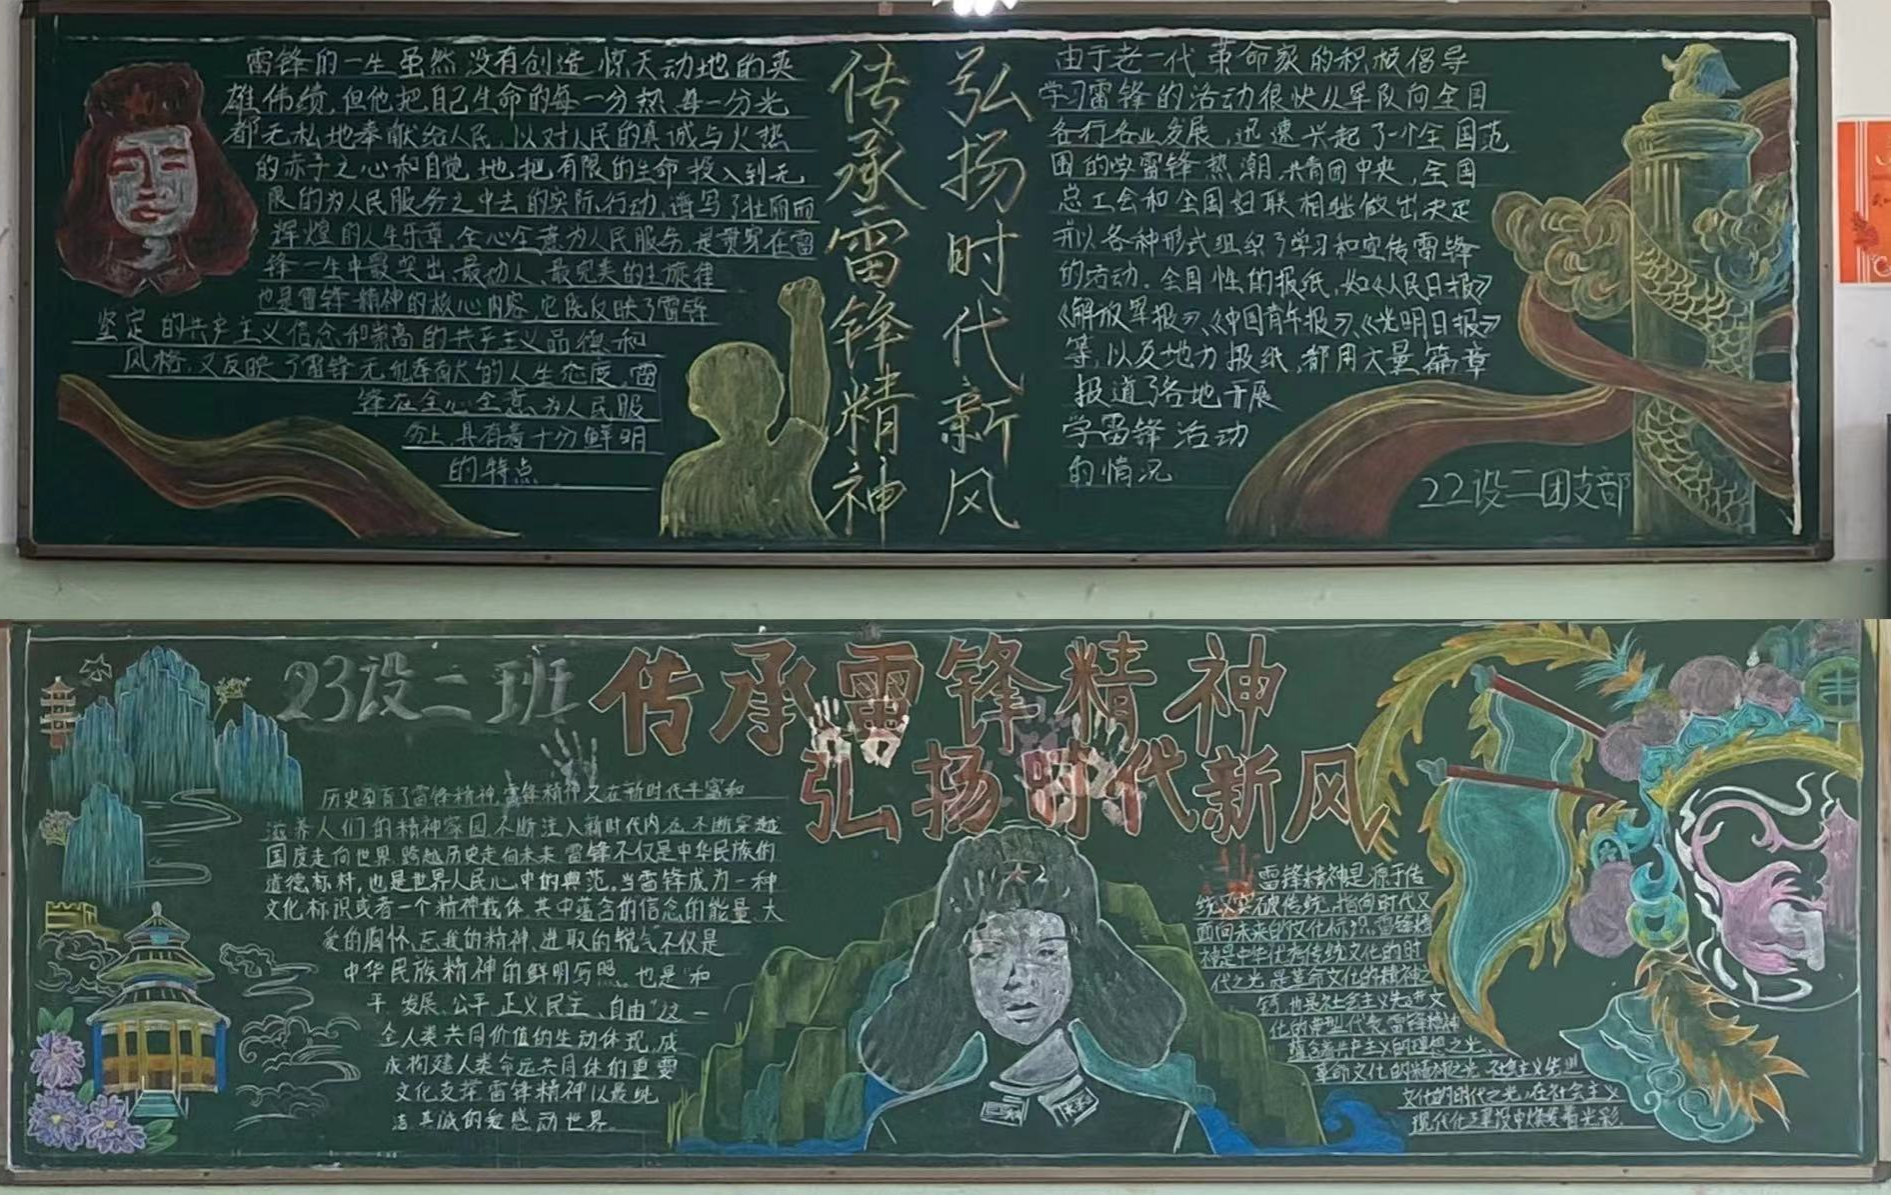 雷锋的一生虽然没有创造惊天动地的英
雄伟绩,但他把自己生命的每一分热每一分光
都无私地奉献给人民,以对人民的真诚与火热
的赤子之心和自觉地把有限的生命投入到无
限的为人民服务之中去的实际行动,谱写了壮丽而
辉煌的人生乐章,全心全意为人民服务是贯穿在雷
锋一生中最突出、最动人、最完美的主旋律
也是雷锋精神的核心内容,它既反映了雷锋
坚定的共产主义信念和崇高的共产主义品德和
风格,又反映了雷锋无私奉献的人生态度,雷
锋在全心全意为人民服
务上,具有着十分鲜明
的特点
传承雷锋精神
弘扬时代新风
由于老一代革命家的积极倡导
学习雷锋的活动很快从军队向全国
各行各业发展,迅速兴起了一个全国范
围的学雷锋热潮,共青团中央,全国
总工会和全国妇联相继做出决定
并以各种形式组织了学习和宣传雷锋
的活动.全国性的报纸,如《人民日报》
《解放军报》、《中国青年报》、《光明日报》
等,以及地方报纸,都用大量篇章
报道了各地开展
学雷锋活动
的情况
22设二团支部
23设二班
传承雷锋精神
弘扬时代新风
历史孕育了雷锋精神,雷锋精神又在新时代丰富和
滋养人们的精神家园不断注入新时代内涵,不断穿越
国度走向世界,跨越历史走向未来.雷锋不仅是中华民族的
道德标杆,也是世界人民心中的典范.当雷锋成为一种
文化标识或者一个精神载体,其中蕴含的信念的能量、大
爱的胸怀、忘我的精神、进取的锐气不仅是
中华民族精神的鲜明写照....也是"和
平 发展、公平 正义 民主、自由"这一
全人类共同价值的生动体现,成
成构建人类命运共同体的重要
文化支撑 雷锋精神以最纯
洁真诚的爱感动世界
雷锋精神是源于传
统又突破传统,指向时代又
面向未来的文化标识,雷锋精
神是中华优秀传统文化的时
代之光,是革命文化的精神之
也是社会主义先进文
化的典型代表.雷锋精神
蕴含着共产主义的理想之光、
革命文化的精神之光 社会主义先进
文化的时代之光,在社会主义
现代化建设中焕发着光彩.